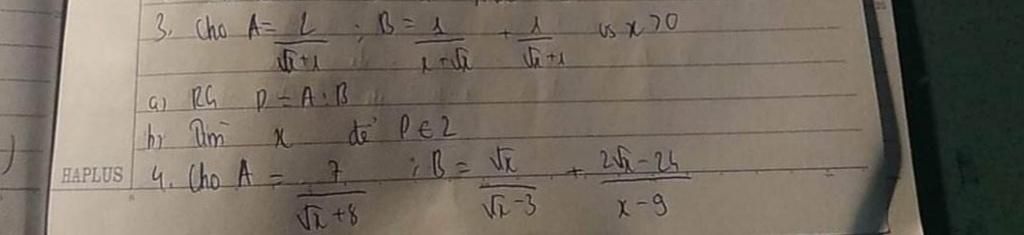 3. Cho A = 2/(√x+1) ; B = 1/(x+√x) + 1/(√x+1) vs x>0
a) RG P = A:B
b) Tìm x để P ∈ Z
HAPLUS
4. Cho A = 7/(√x+8) ; B = √x/(√x-3) + (2√x-24)/(x-9)